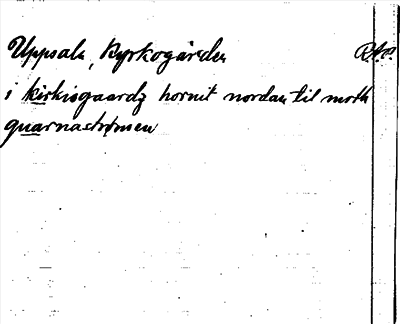 Uppsala, Kyrkogården R.A.P.
i kirkiogaardz hornit nordan til moth
quarnastrømen